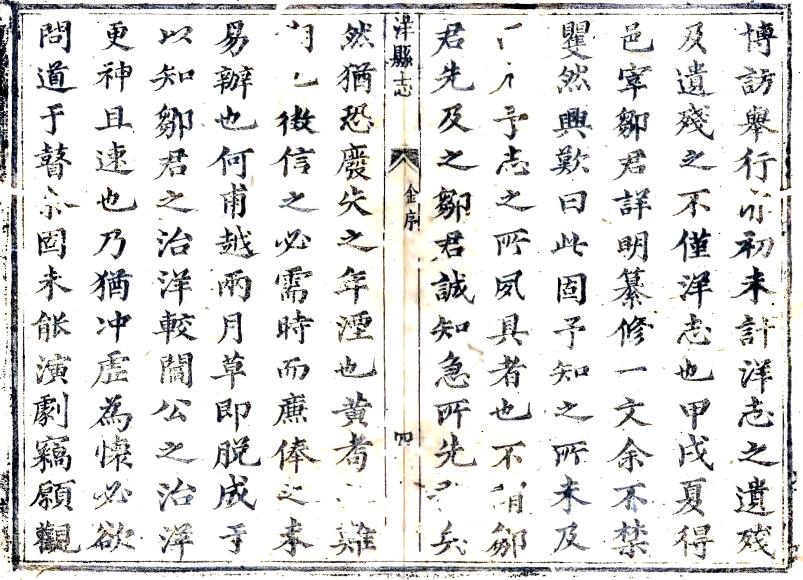 博訪舉行而初未計洋志之遺殘
及遺殘之不僅洋志也甲戌夏得
邑宰鄒君詳明纂修一文余不禁
瞿然興歎曰此固予知之所未及
予志之所夙具者也不鄒
君先及之鄒君誠知急所先矣
洋縣志
金序
四
然猶恐廢失之年湮也黃耇難
徵信之必需時而廉俸之奉
易辦也何甫越兩月草即脫成于
以知鄒君之治洋較閻公之治洋
更神且速也乃猶冲虛為懷必欲
問道于瞽余固未能演劇竊願觀